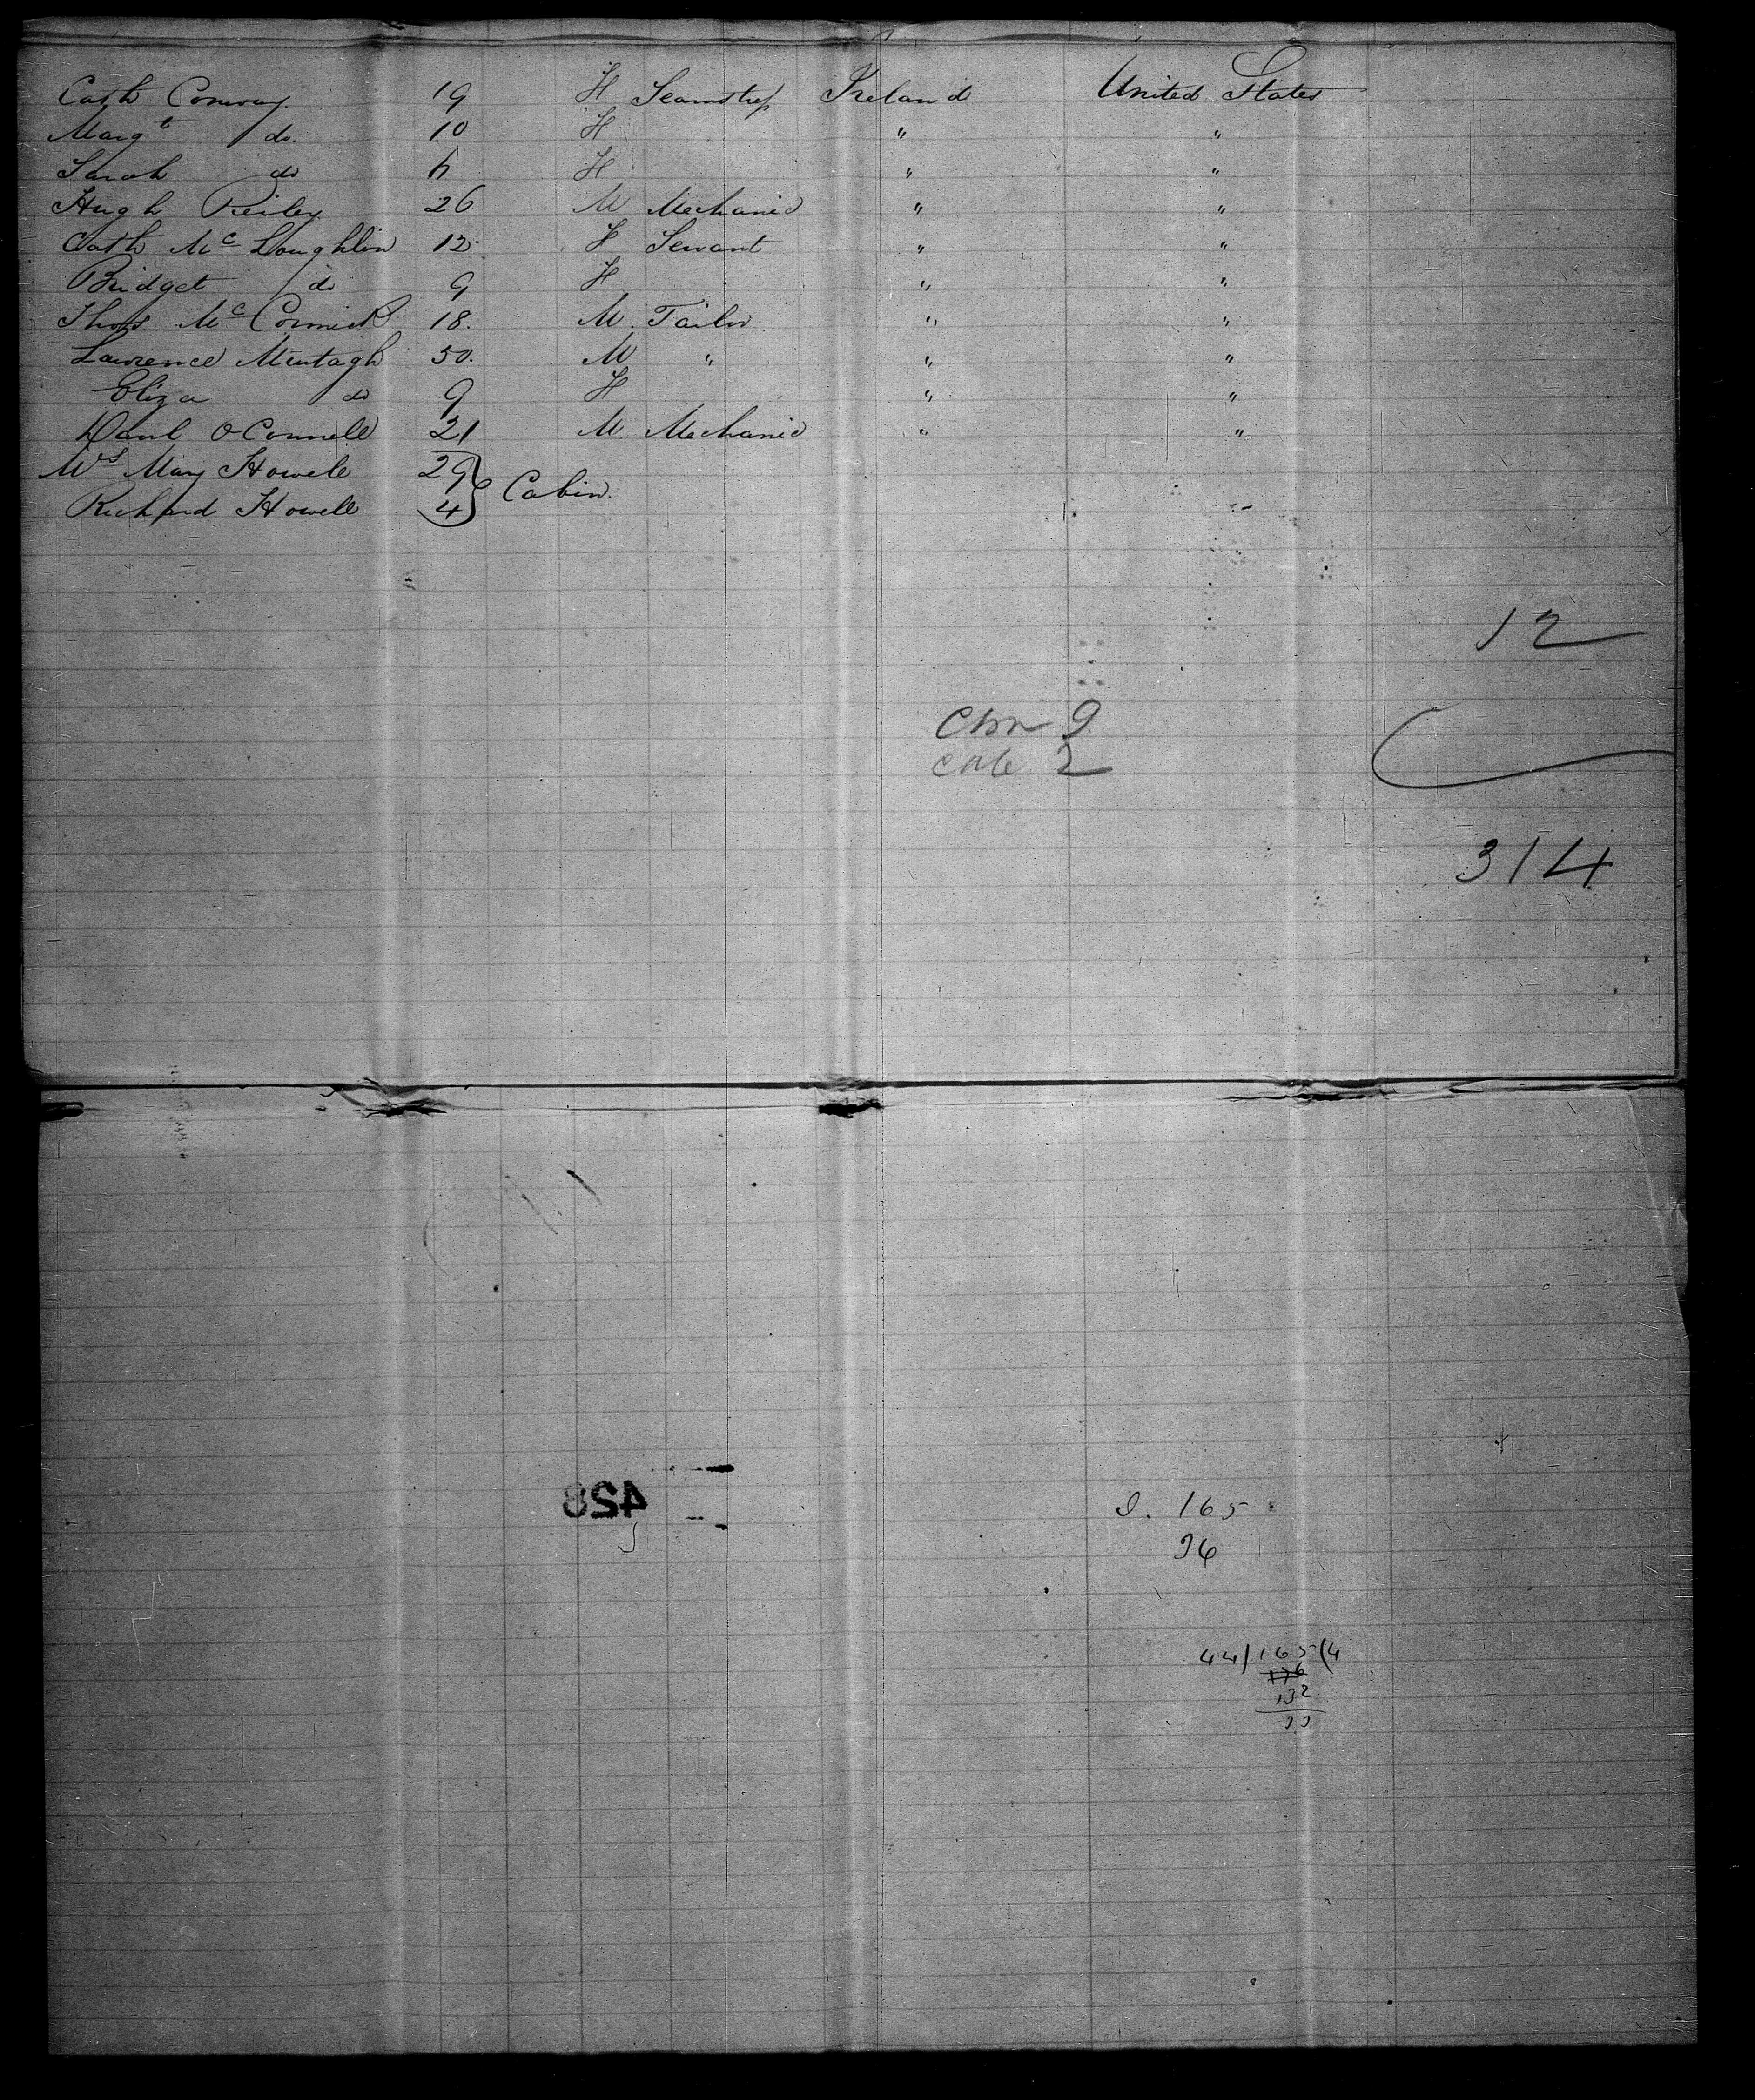 Cath Conway 19 F Seamstress Ireland United States
Margt do. 10 F " "
Sarah do 6 F " "
Hugh Reiley 26 M Mechanic " "
Cath McLoughlin 12 F Servant " "
Bridget do 9 F " "
Thos McCormick 18. M Tailor " "
Lawrence Murtagh 50. M " " "
Eliza do 9 F " "
Danl O Connell 21 M Mechanic " "
Mrs Mary Howell 29 Cabin.
Richard Howell 4
12
9
2
314
428
165
36
44)165(4
176
132
33